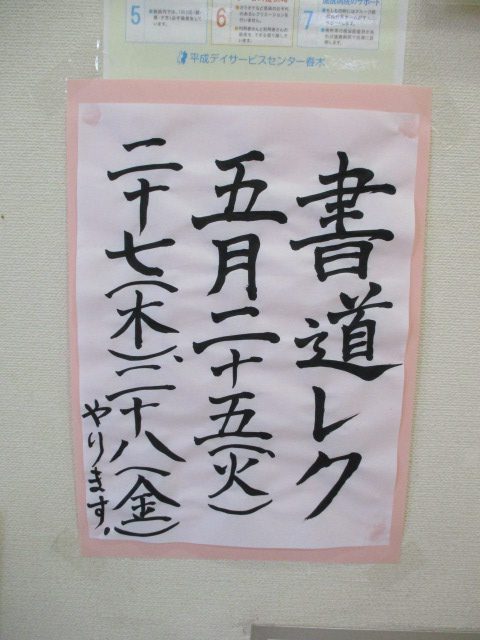 5
6
7
平成デイサービスセンター春木
書道レク
五月二十五(火)、
二十七(木)、二十八(金)
やります。